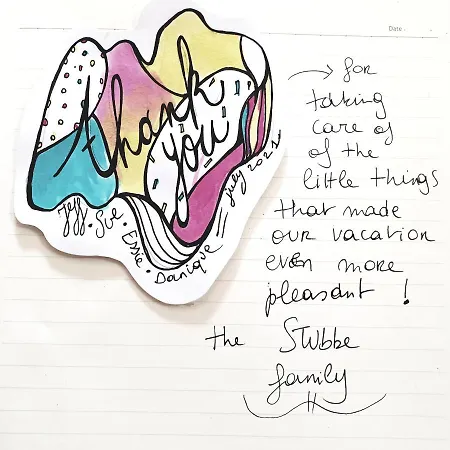 Date
thank
you
Jeff. Sue. Esse. Danique = July 2021
→ for
taking
care of
of the
little things
that made
our vacation
even more
pleasant !
the Stubbe
family